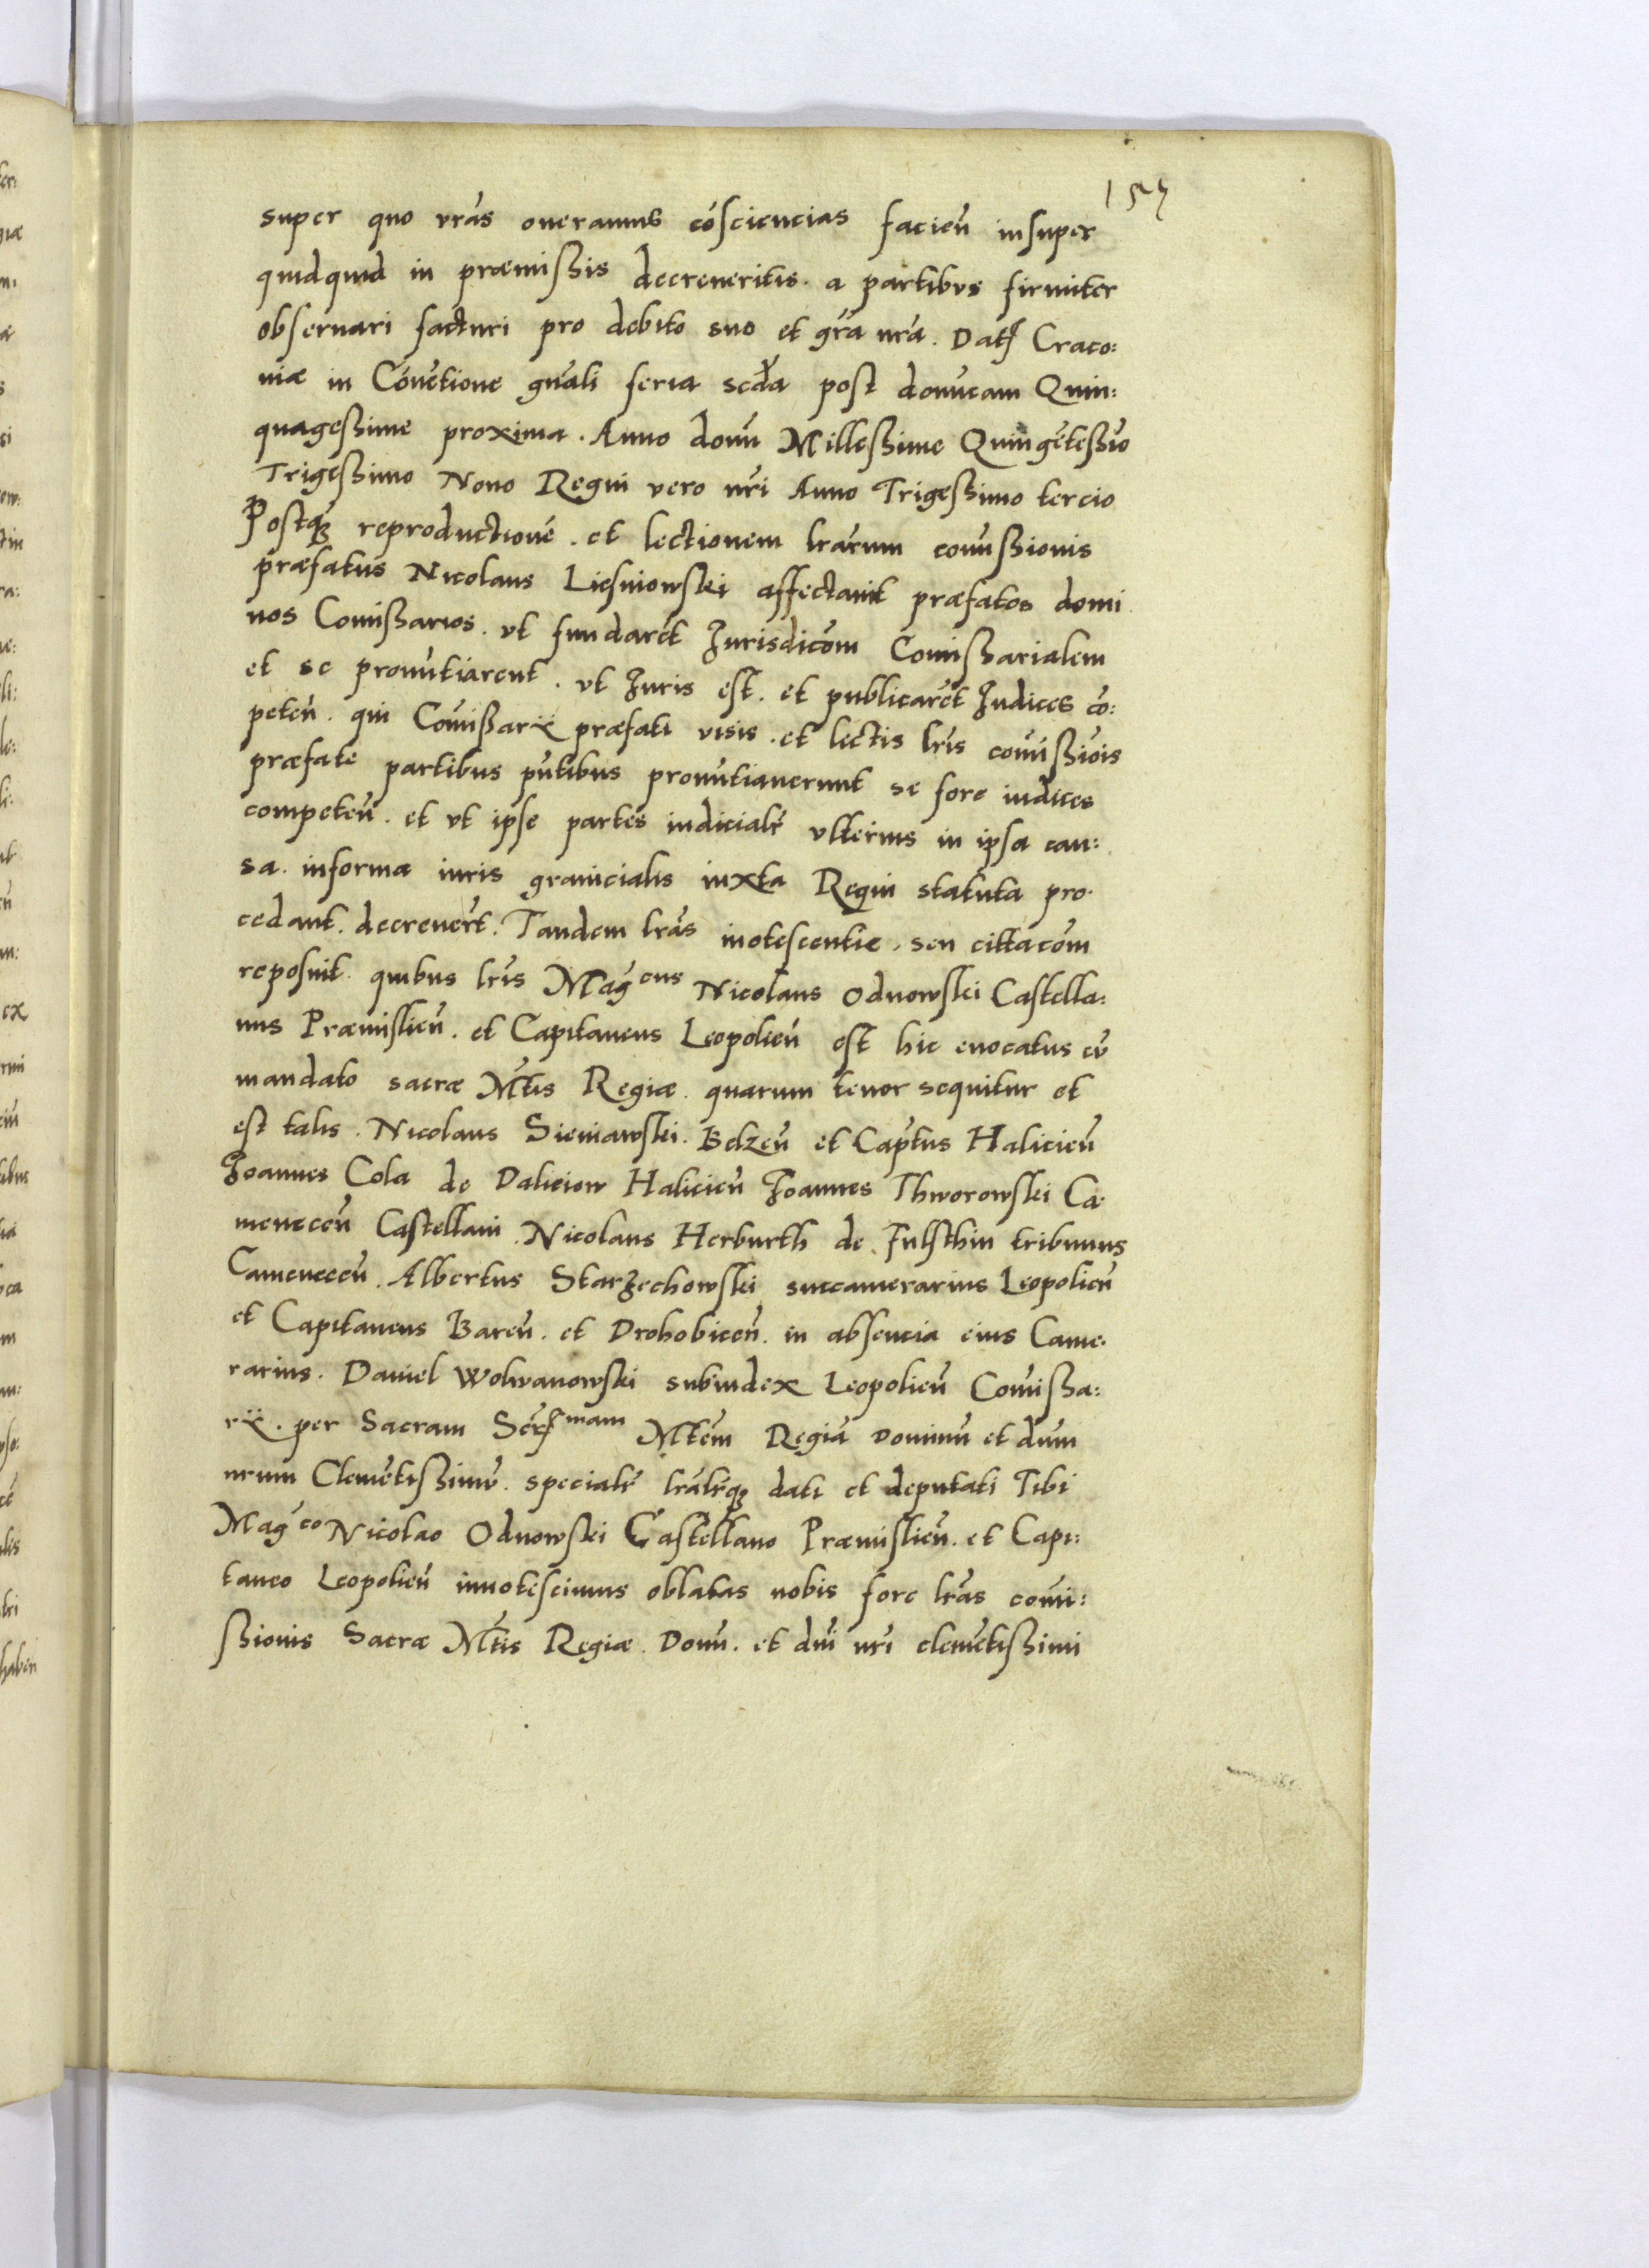 super quo vras oneramus cōsciencias facieñ insuper
quidquid in præmissis decreveritis. a partibus firmiter
observari facturi pro debito suo et gra nra. Dat Craco:
niæ in Cōvētione gnali feria scda post domicam Quin:
quagessime proxima. Anno domi Millessimo Quingētessimo
Trigessimo Nono Regni vero nri Anno Trigessimo tercio
Postqʒ reproductionē. et lectionem lrarum comissionis
præfatus Nicolaus Liesniowski affectavit præfatos domi
nos Comissarios. vt fundarēt Jurisdicōm Comissarialem
et se pronūtiarent. vt Juris est. et publicarēt Judices cō:
peteñ. qui Comissarÿ præfati visis. et lectis lris comissiōis
præfate partibus pñtibus pronūtiaverunt se fore iudices
competeñ. et vt ipse partes iudicialr̄ vlterius in ipsa cau:
sa. informa iuris granicialis iuxta Regni statuta pro.
cedant. decrevert. Tandem lras inotescentiæ. seu cittacōm
reposuit. quibus lris Magcus Nicolaus Odnowski Castella:
nus Præmislieñ. et Capitaneus Leopolieñ est hic evocatus cū
mandato sacræ Mtis Regiæ. quarum tenor sequitur et
est talis. Nicolaus Sieniawski. Belzeñ et Captus Halicieñ
Joannes Cola de Dalieiow Halicieñ Joannes Thworowski Ca.
meneceñ Castellani. Nicolaus Herburth de Fulsthin tribunus
Cameneceñ. Albertus Starzechowski succamerarius Leopolieñ
et Capitaneus Bareñ. et Drohobiceñ. in absencia eius Came.
rarius. Daniel Wolwanowski subiudex Leopolieñ Comissa:
rÿ. per Sacram Serſmam Mtem Regiā Dominū et dum
nrum Clemētissimū. specialr̄ lralrqʒ dati et deputati Tibi
Magco Nicolao Odnowski Castellano Præmislieñ. et Capi:
taneo Leopolieñ innotescimus oblatas nobis fore lras comi:
ssionis Sacræ Mtis Regiæ. Domi. et dni nri clemētissimi